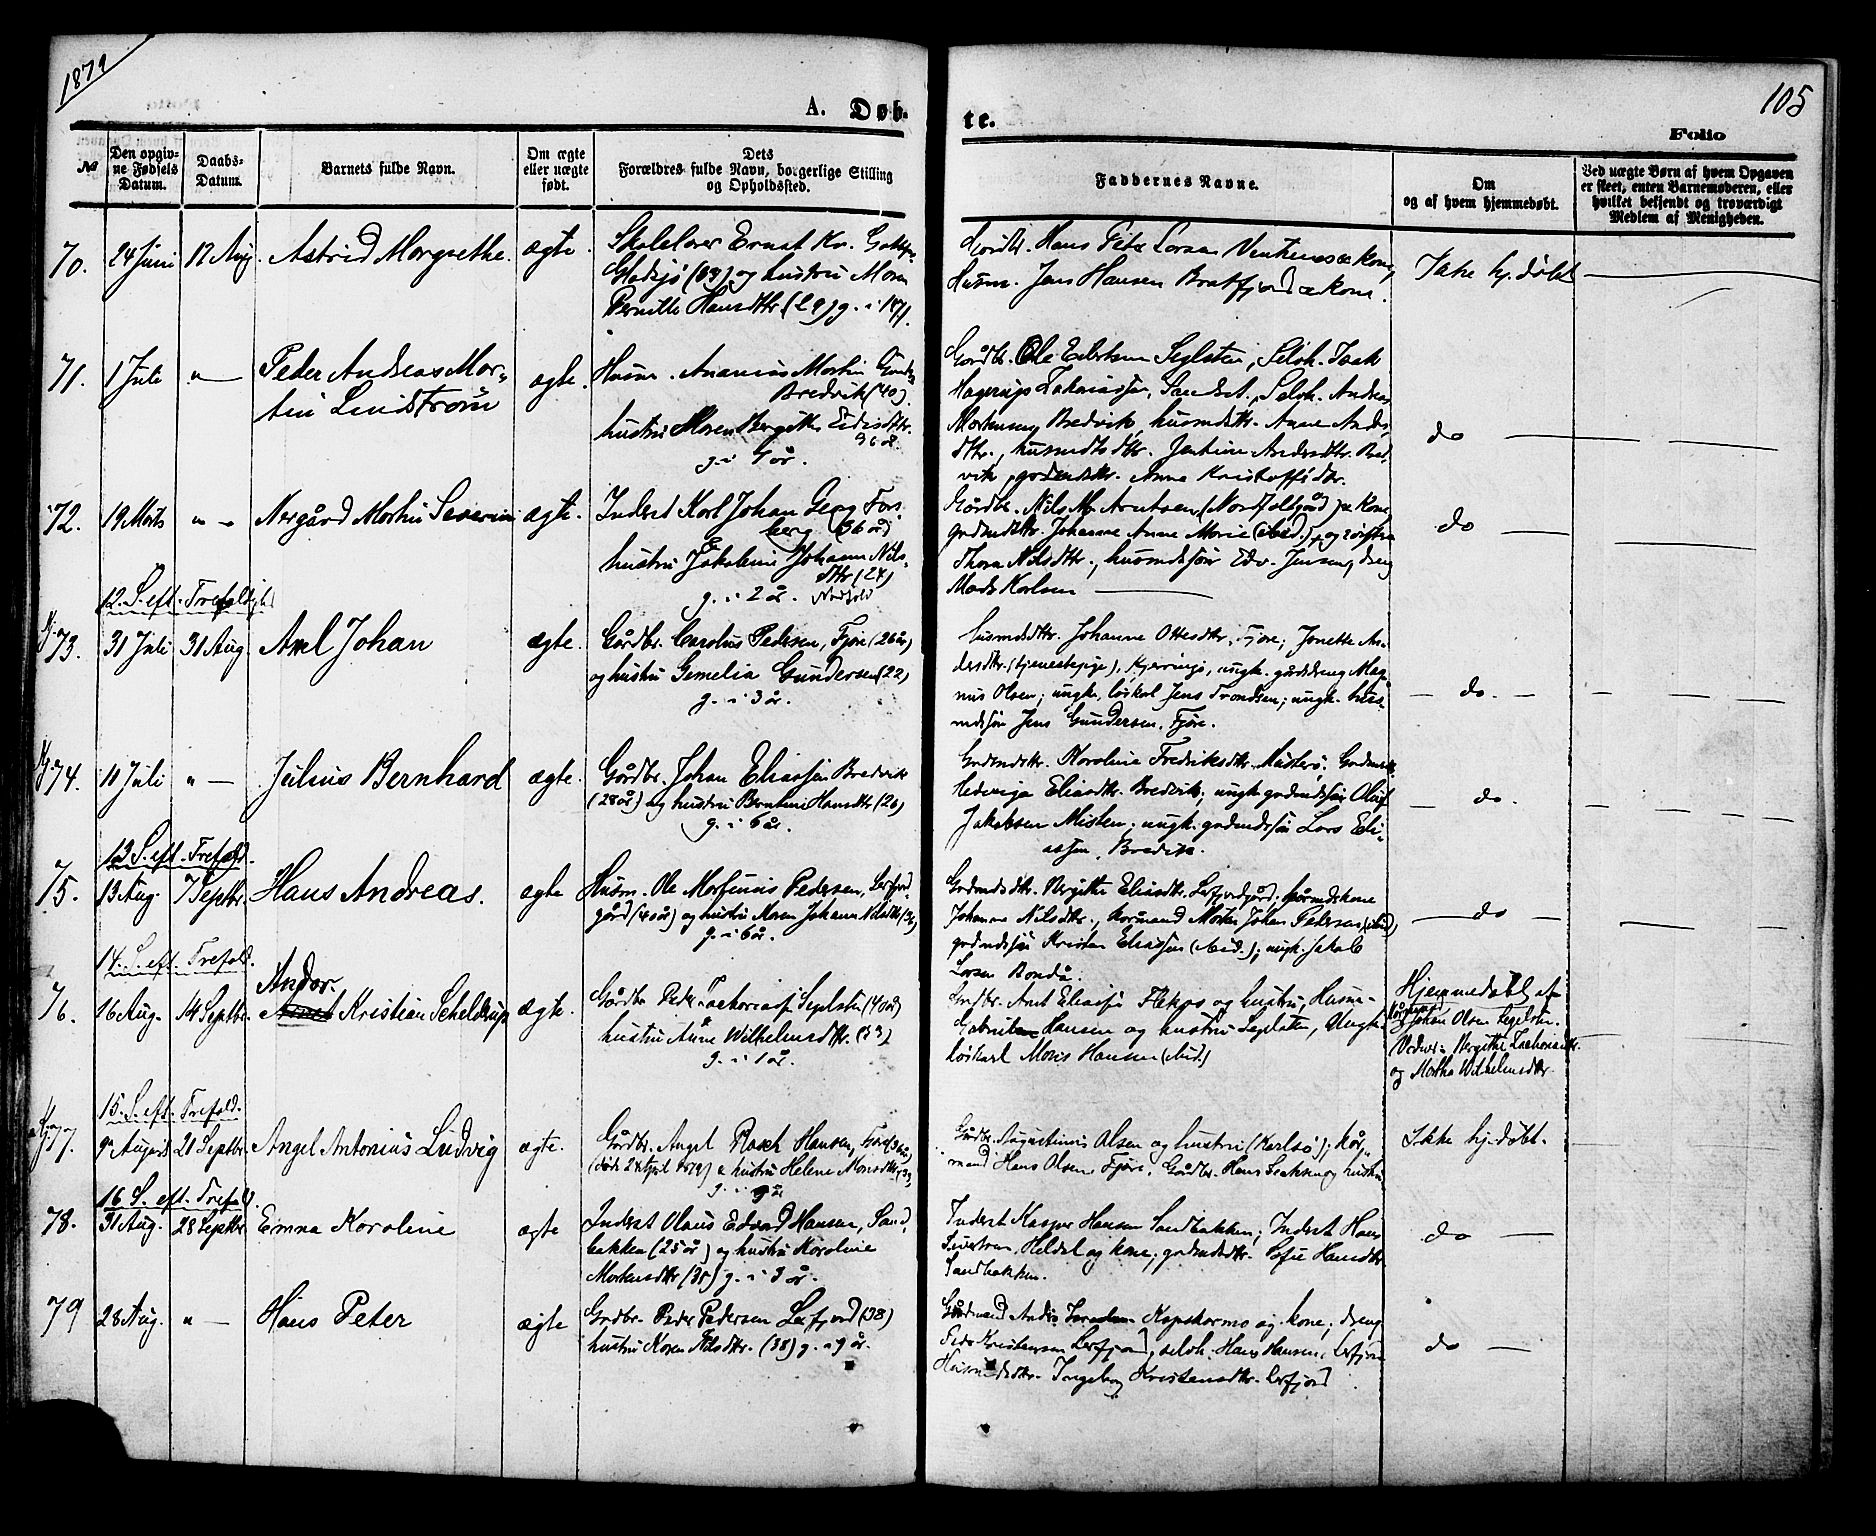 1879
A. Døb-
te.
105
Folio
№
Den opgiv-
ne Fødsels
Datum.
Daabs-
Datum.
Barnets fulde Navn.
Om ægte
eller uægte
født.
Dets
Forældres fulde Navn, borgerlige Stilling
og Opholdssted.
Faddernes Navne.
Om
og af hvem hjemmedøbt.
Ved uægte Børn af hvem Opgaven
er skeet, enten Barnemoderen, eller
hvilket bekjendt og troværdigt
Medlem af Menigheden.
70. 24 Juni 17 Aug. Astrid Margrethe. ægte.
Skolelærer Ernst Kr.
og hustru
Pernille Hansdtr (29) g. i 1871.
Hans Peter
Husm. Jens Hansen Bratfjord & kone.
Ikke hj.døbt
71. 1 Juli " Peder Andreas Mor-
tin Lindstrøm
ægte.
Husm. Ananias Martin
Bredvik (40)
hustru Maren Bergitte
36 år.
g. i 7 år
Gårdbr. Ole Segelsten, Selvh. Isak
Hagerups Sandset, Selvh. Andreas
Bredvik, husmdsdtr. Anne
dtr., husmdsdtr. Jentine Andersdtr. Bred-
vik, Anne
do
72. 19 Marts " Nergård Martin Severin ægte.
Inderst Karl Johan Georg Fors-
berg (36 år)
hustru Jakobine Johanna Nils-
dtr (24)
g. i 2 år.
Gårdbr. Nils M. Arntsen (Nordfoldgård) & kone,
Johanne Anne Marie (ibid.), og
Thora Nilsdtr., husmdssøn Edv. Jensen, dreng
Mads Karlsen
do
12. S. eft. Trefoldighed
73. 31 Juli 31 Aug. Axel Johan ægte.
Gårdbr. Carolus Pedersen, Fjære (26 år)
og hustru Gemelia Gundersen (22)
g. i 3 år.
husmdsdtr. Johanne Ottesdtr. Fjære; Jonette An-
dersdtr. (tjenestepige), Kjerringø, ungk. gårddreng Mag-
nus Olsen; ungk. løskarl Jens Trondsen; ungk. hus-
mdssøn Jens Gundersen, Fjære.
do.
74. 11 Juli " Julius Bernhard ægte.
Gårdbr. Johan Eliassen Bredvik
(28 år) og hustru Bernhine Hansdtr (26)
g. i 6 år.
Karoline Fredriksdtr. Mistersø;
Hedeviga Eliasdtr. Bredvik; ungk. Oluf
Jakobsen Misten; ungk. Lars Eli-
assen, Bredvik.
do.
13 S. eft. Trefold.
75. 13 Aug. 7 Septbr. Hans Andreas. ægte
Husm. Ole Morfinus Pedersen, Lerfjord-
gård (40 år) og hustru Maren Johanna
g. i 6 år.
Bergitte Eliasdtr. Lerfjordgård;
Johanne Nilsdtr., kårmand Morten Johan Petersen (ibid)
Kristen Eliassen (ibid.); ungk. Jakob
Larsen Bondå.
do
14. S. eft. Trefold.
76. 16 Aug. 14 Septbr. Andor. Kristian Scheldrup ægte.
Gårdbr. Peder Zachariass. Segelsten (40 år)
hustru Anne Wilhelmsdtr. (33)
g. i 1 år.
Gårdbr. Arnt Eliass. og hustru, Husm.
Hansen og hustru Segelsten, Ungk.
løskarl Mons Hansen (ibid.)
Hjemmedøbt af
Johan Olsen Segelsten.
Vidner: Bergitte Zachariasdtr.
og Martha Wilhelmsdtr.
15. S. eft. Trefold.
77. 9de August 21 Septbr. Angel Antonius Ludvig ægte.
Gårdbr. Angel Rasch Hansen,
(død 24 April 1879) & hustru Helene Monsdtr. (33)
g. i 9 år
Gårdbr. Augustinus Olsen og hustru (Karlsø); kår-
mand Hans Olsen Fjære, Gårdbr. Hans og hustru
Ikke hj.døbt.
16 S. eft. Trefold.
78. 31 Aug. 28 Septbr. Emma Karoline ægte
Inderst Olaus Edvard Hansen, Sand-
bakken (25 år) og hustru Karoline
Mortensdtr (35) g. i 3 år.
Inderst Kasper Hansen Sandbakken; Inderst Hans
Sivertsen Heldal og kone; Sofie Hansdtr.
Sandbakken.
do
79 28 Aug. " Hans Peter ægte
Gårdbr. Peder Pedersen Lerfjord (38)
hustru Karen Nilsdtr. (38) g. i 9 år.
Gårdmand Andr. Kapskarmo og kone; dreng
Peder Kristensen Lerfjord, selvh. Hans Hansen, Lerfjord
Husmdsdtr. Ingeborg Kristensdtr. Lerfjord
do